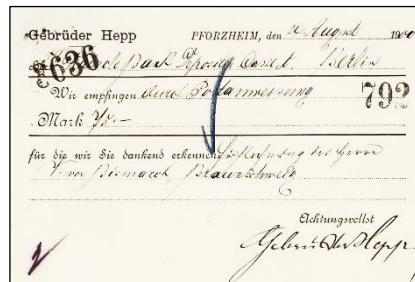 Gebrüder Hepp PFORZHEIM, den 2. August 1900
636 Bank Deposit Berlin
Wir empfingen durch Postanweisung 792
Mark 70.-
für die wir Sie dankend erkennen Rechnung des Herrn
F. von Bismarck Braunschweig
Achtungsvollst
Gebrüder Hepp